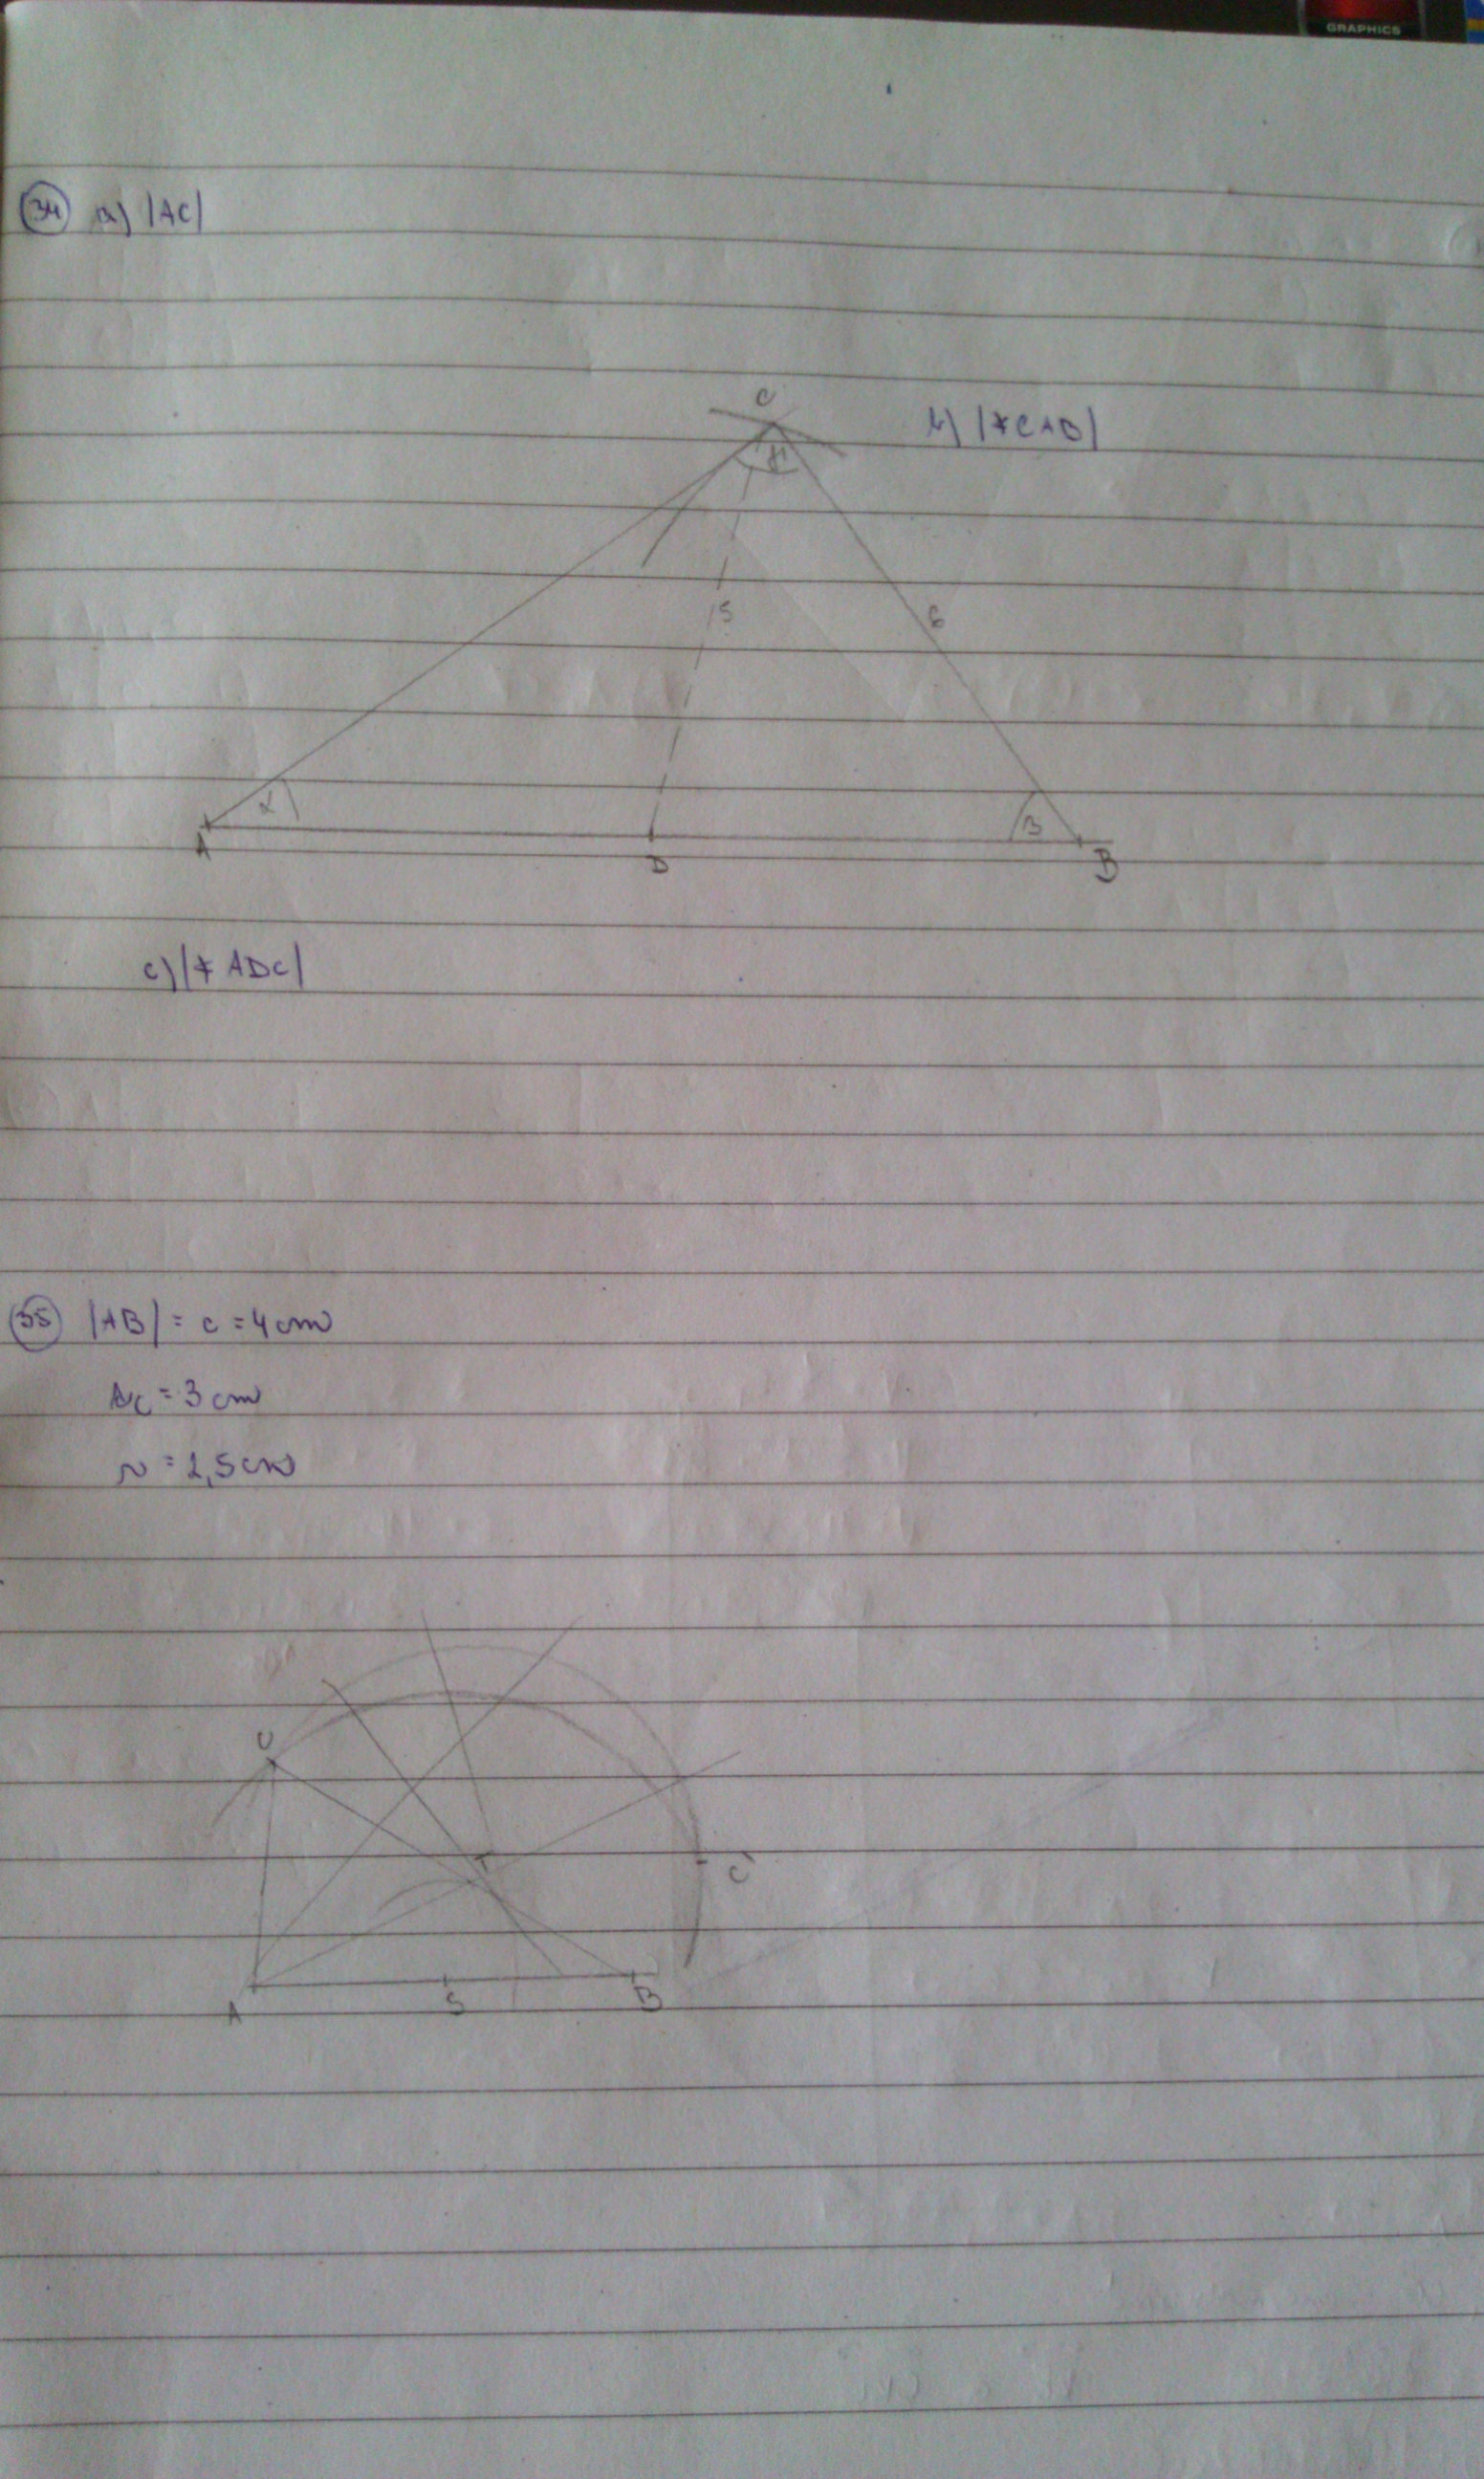 GRAPHICS
34 a) |AC|
C
b) |∢CAB|
γ
S
6
α
β
A
D
B
c) |∢ADC|
35 |AB| = c = 4cm
= 3cm
C
T
C'
A
S
B